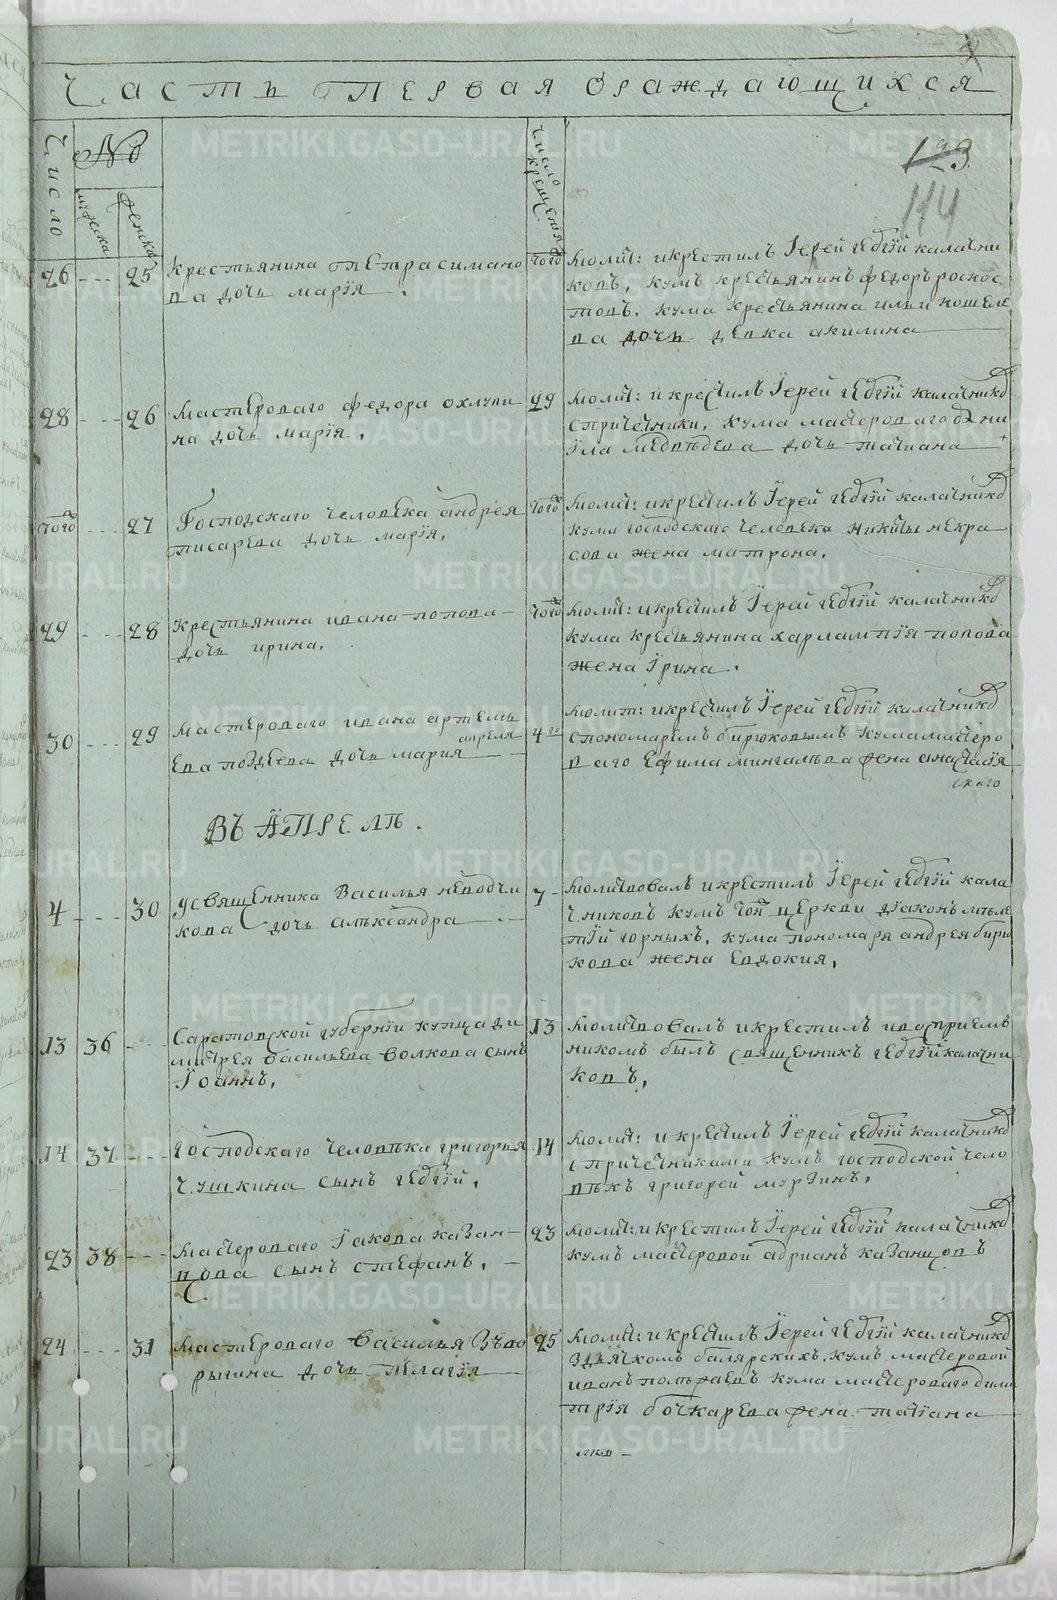 Часть Первая Ораждающихся
123
114
Число
№
мужеска
женска
Число крещения
26 --- 25 Крестьянина Петра симано
ва дочь мария.
того
молит: и крестилъ Іерей геѡгій калачни
ковъ, кумъ крестьянинъ федоръ роскос
товъ. кума крестьянина ильи кошеле
ва дочь девка акилина
28 --- 26 Мастероваго федора охлупи
на дочь марія.
29
молит: и крестилъ Іерей геѡгій калачников
спричетники, кума мастероваго дани
іла медвѣдева дочь татиана
того --- 27 Господскаго человека андрея
писарева дочь марія.
того
молит: и крестилъ Іерей геѡгій калачников
кума господскаго человека никиты некра
сова жена матрона.
29 --- 28 крестьянина ивана попова
дочь ирина.
того
молит: и крестилъ Іерей геѡгій калачников
кума крестьянина харлампія попова
жена Ірина.
30 --- 29 мастероваго ивана артемь
ева поздеева дочь мария
апреля
4го
молит: и крестилъ Іерей геѡгій калачников
спономаремъ бирюковымъ кума мастеро
ваго Ефима мингалѣва жена анастасія
Въ Апрелѣ.
4 --- 30 усвященника Василья
кова дочь алѣксандра
7
молитвовалъ и крестилъ Іерей геѡгій кала
чниковъ кумъ той церкви діаконъ мѣле
тій горныхъ. кума пономаря андрея бирю
кова жена Евдокия.
13 36 --- Саратовской губерніи купца ди
митрея васильева волкова сынъ
Іоаннъ.
13
молитвовалъ и крестилъ ивосприем
никомъ былъ священникъ геѡгій калачни
ковъ.
14 37 --- господскаго человѣка григорья
чушкина сынъ геѡгій.
14
молит: и крестилъ Іерей геѡгій калачников
спричетниками кумъ господской чело
вѣкъ григорей мурзинъ.
23 38 --- мастероваго Іакова казан-
цова сынъ стефанъ.
23
молит: и крестилъ Іерей геѡгій калачников
кумъ мастеровой адрианъ казанцовъ
24 --- 31 мастероваго василья
рыгина дочь Пелагія
25
молит: и крестилъ Іерей геѡгій калачников
здьячкомъ болярскихъ. кумъ мастеровой
иванъ кума мастероваго дими
трія бочкарева жена татіана
METRIKI.GASO-URAL.RU